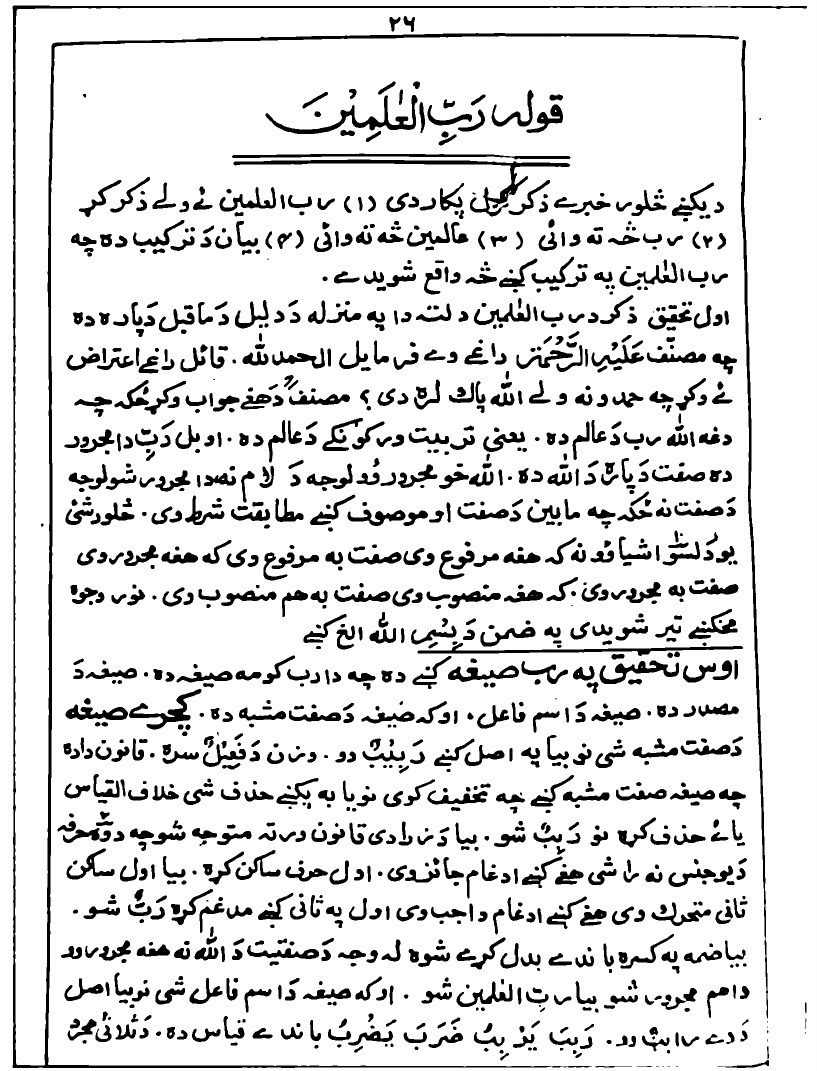 ٢٦
قوله رَبِّ الْعٰلَمِيْنَ
دیکنے څلور خبرے ذکر کول پکار دی (١) رب العلمین ئے ولے ذکر کړ
(٢) رب څه ته وائی (٣) عالمین څه ته وائی (۴) بیان دَ ترکیب ده چه
رب العٰلمین په ترکیب کنے څه واقع شویدے .
اول تحقیق ذکر د رب العٰلمین دلته دا په منزله دَ دلیل دَ ماقبل دَ پاره ده
چه مصنّف عَلَيْهِ الرَّحْمَة داغے وے فرمایل الحمد لله . قائل داغے اعتراض
ئے وکړ چه حمدونه ولے الله پاک لره دی ؟ مصنفؒ دَ هغے جواب وکړ ځکه چه
دغه الله رب دَ عالم ده . یعنی تربیت ورکوئکے دَ عالم ده . او بل رَبِّ دا مجرور
ده صفت دَ پاره دَ الله ده . الله خو مجرور وُو لوجه دَ لام نه دا مجرور شولوجه
دَ صفت نه ځکه چه مابین دَ صفت او موصوف کنے مطابقت شرط وی . څلور شئ
یو دَ لسو اشیاؤ نه که هغه مرفوع وی صفت به مرفوع وی که هغه مجرور وی
صفت به مجرور وی . که هغه منصوب وی صفت به هم منصوب وی . نور وجوه
مخکنے تیر شویدی په ضمن دَ بِسْمِ الله الخ کنے
اوس تحقیق په رب صیغه کنے ده چه دا رب کومه صیغه ده . صیغه دَ
مصدر ده . صیغه دَ اسم فاعل ، او که صیغه دَ صفت مشبه ده . کچرے صیغه
دَ صفت مشبه شی نو بیا په اصل کنے رَبِيْبٌ وو . وزن دَ فَعِيْلٌ سره . قانون داده
چه صیغه صفت مشبه کنے چه تخفیف کوی نو یا به پکنے حذف شی خلاف القیاس
یائے حذف کړه نو رَبِبٌ شو . بیا دَ زرادی قانون ورته متوجه شو چه دوه حرفه
دَ یو جنس نه راشی هغے کنے ادغام جائز وی . اول حرف ساکن کړه . بیا اول ساکن
ثانی متحرک وی هغے کنے ادغام واجب وی اول په ثانی کنے مدغم کړه رَبٌّ شو .
بیا ضمه په کسره باندے بدل کړے شوه له وجه دَ صفتیت دَ الله نه هغه مجرور وو
دا هم مجرور شو بیا ربِ العٰلمین شو . او که صیغه دَ اسم فاعل شی نو بیا اصل
دَ دے رابتٌ وو . رَبَبَ يَرْبِبُ ضَرَبَ يَضْرِبُ باندے قیاس ده . دَ ثلاثی مجرد